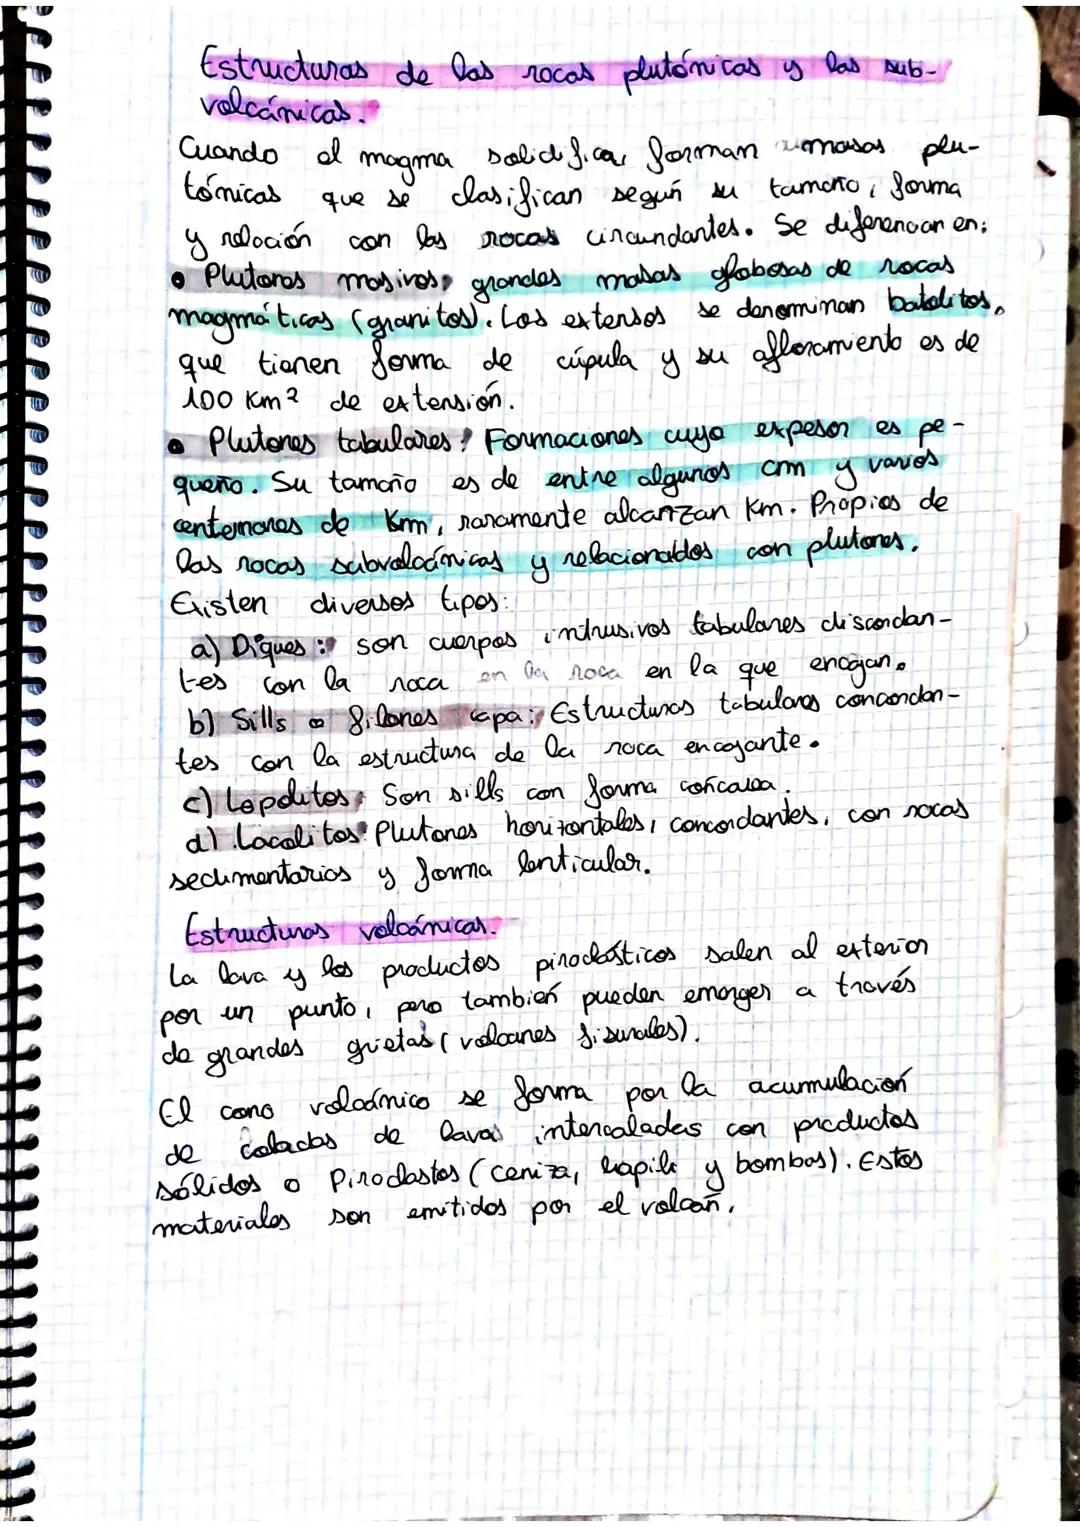 Estructuras de las rocas plutónicas y las sub-
volcánicas.
Cuando el magma solidifica, forman masas plu-
tónicas que se clasifican según su tamaño, forma
y relación con las rocas circundantes. Se diferencian en:
• Plutones masivos: grandes masas globosas de rocas
magmáticas (granitos). Los extensos se denominan batolitos,
que tienen forma de cúpula y su afloramiento es de
100 Km² de extensión.
• Plutones tabulares: Formaciones cuyo espesor es pe-
queño. Su tamaño es de entre algunos cm y varios
centenares de Km, raramente alcanzan Km. Propios de
las rocas subvolcánicas y relacionados con plutones.
Existen diversos tipos:
a) Diques: son cuerpos intrusivos tabulares discordan-
tes con la roca en la roca en la que encajan.
b) Sills o filones capa: Estructuras tabulares concordan-
tes con la estructura de la roca encajante.
c) Lopolitos: Son sills con forma cóncava.
d) Lacolitos: Plutones horizontales, concordantes, con rocas
sedimentarias y forma lenticular.
Estructuras volcánicas.
La lava y los productos piroclásticos salen al exterior
por un punto, pero también pueden emerger a través
de grandes grietas (volcanes fisurales).
El cono volcánico se forma por la acumulación
de coladas de lavas intercaladas con productos
sólidos o Piroclastos (ceniza, lapilli y bombas). Estos
materiales son emitidos por el volcán.